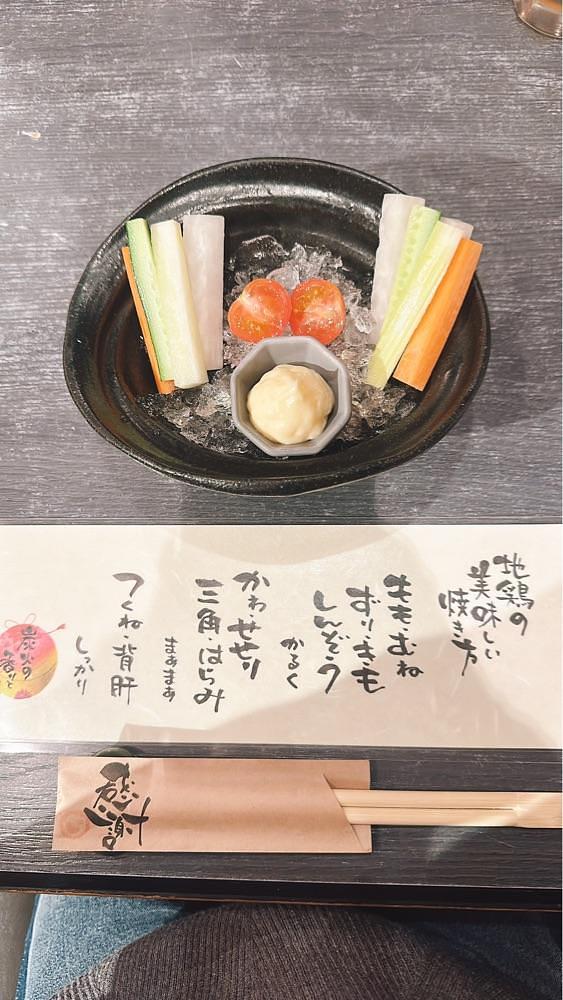 地鶏の
美味しい
焼き方
もも・むね
ずり・きも
しんぞう
かるく
かわ・せせり
三角・はらみ
まぁまぁ
つくね・背肝
しっかり
炭火の
香りと
感謝